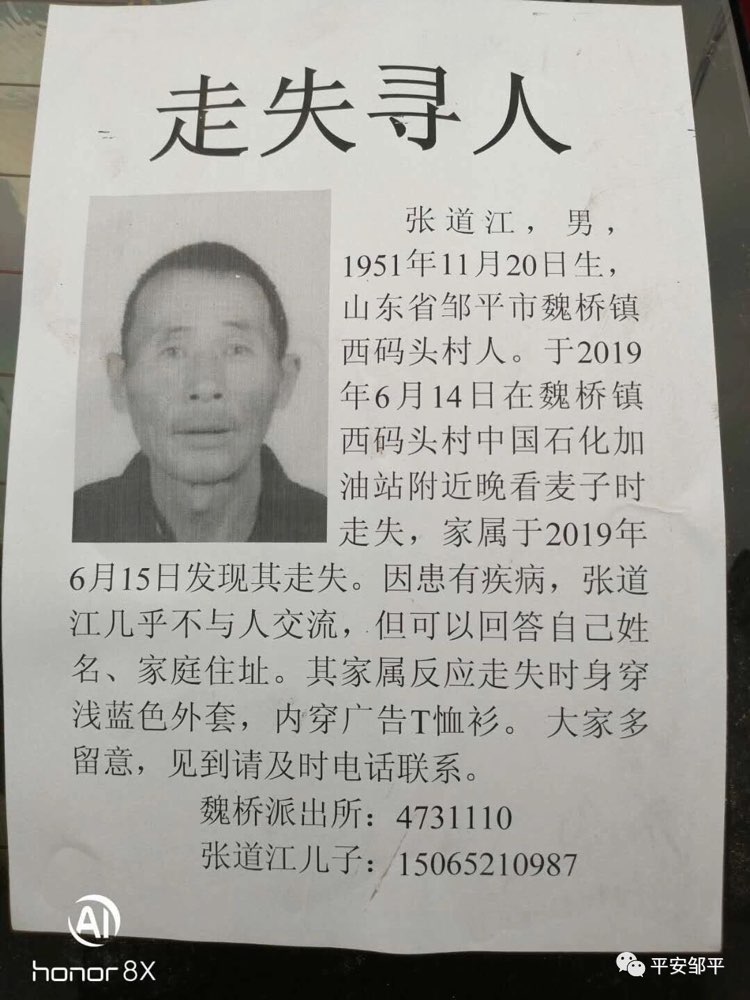 走失寻人
张道江，男，
1951年11月20日生，
山东省邹平市魏桥镇
西码头村人。于2019
年6月14日在魏桥镇
西码头村中国石化加
油站附近晚看麦子时
走失，家属于2019年
6月15日发现其走失。因患有疾病，张道
江几乎不与人交流，但可以回答自己姓
名、家庭住址。其家属反应走失时身穿
浅蓝色外套，内穿广告T恤衫。大家多
留意，见到请及时电话联系。
魏桥派出所：4731110
张道江儿子：15065210987
AI
honor 8X
平安邹平